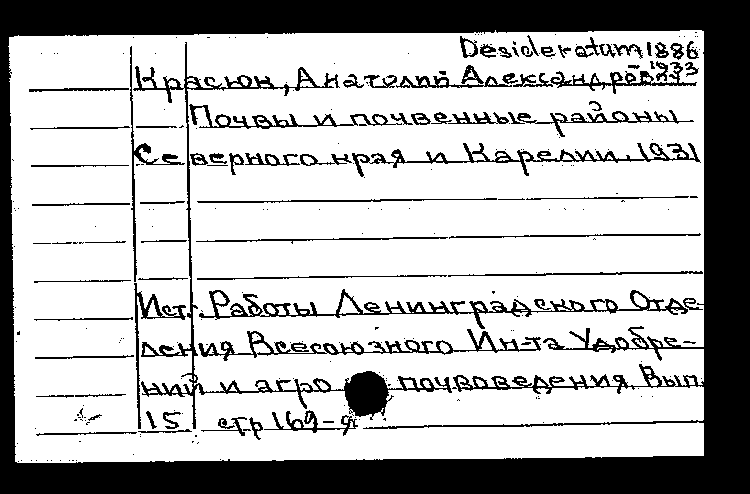 Desideratum 1886
-1933
Красюк, Анатолий Александрович
Почвы и почвенные районы
Северного края и Карелии. 1931
Ист. Работы Ленинградского Отде-
ления Всесоюзного Ин-та Удобре-
ний и агро почвоведения. Вып.
15 стр 169-